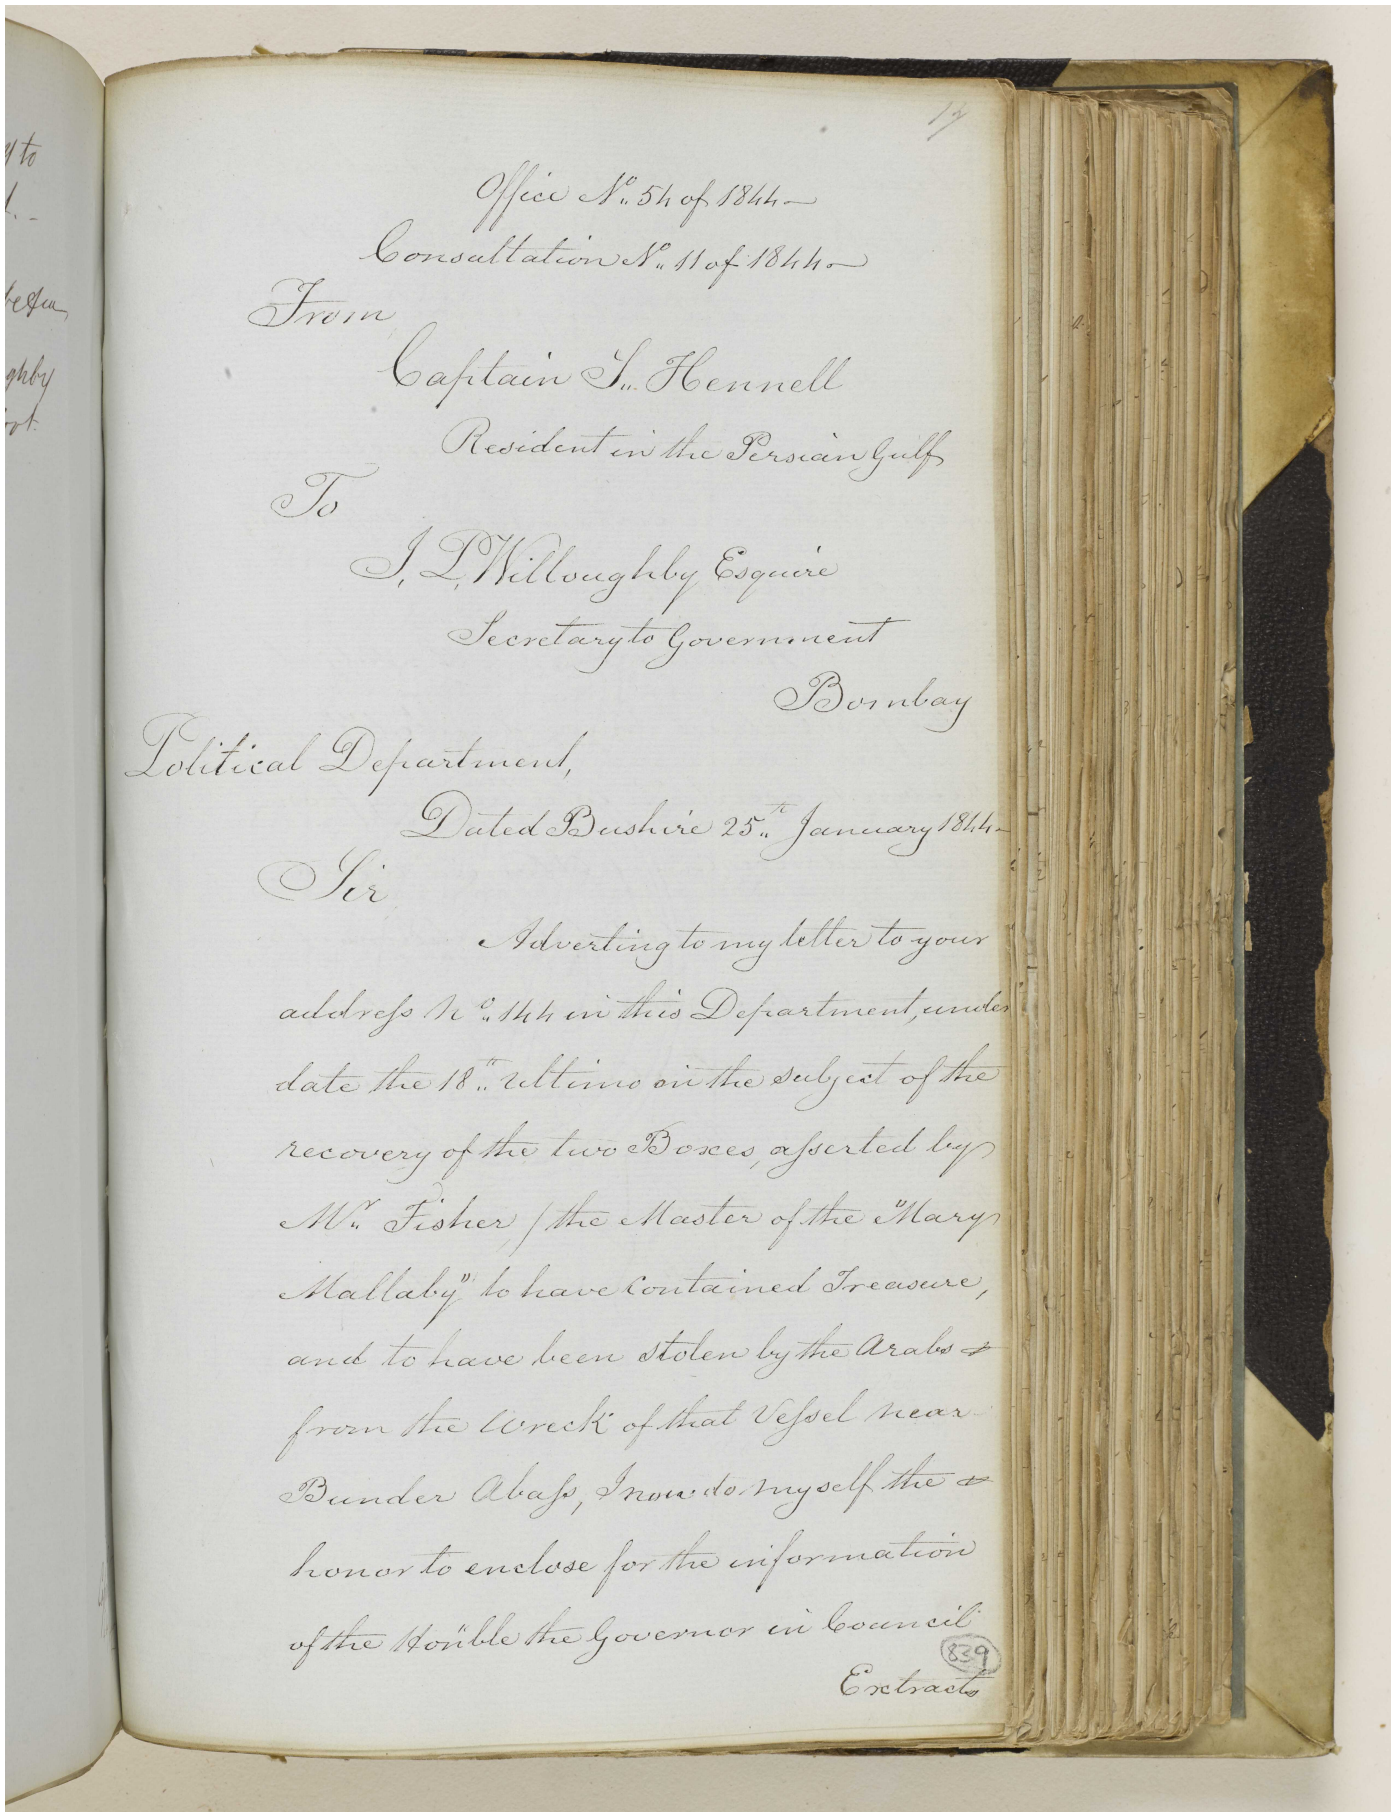 y to
d. -
ghby
17
Office No. 54 of 1844 —
Consultation No. 11 of 1844 —
From
Captain S. Hennell
Resident in the Persian Gulf
To
J. P. Willoughby Esquire
Secretary to Government
Bombay
Political Department,
Dated Bushire 25th January 1844 -
Sir
Adverting to my letter to your
address No. 144 in this Department, under
date the 18th Ultimo on the subject of the
recovery of the two Boxes, asserted by
Mr. Fisher / the Master of the "Mary
Mallaby" to have contained Treasure,
and to have been stolen by the Arabs
from the Wreck of that Vessel near
Bunder Abass, I now do myself the
honor to enclose for the information
of the Hon'ble the Governor in Council
839
Extracts